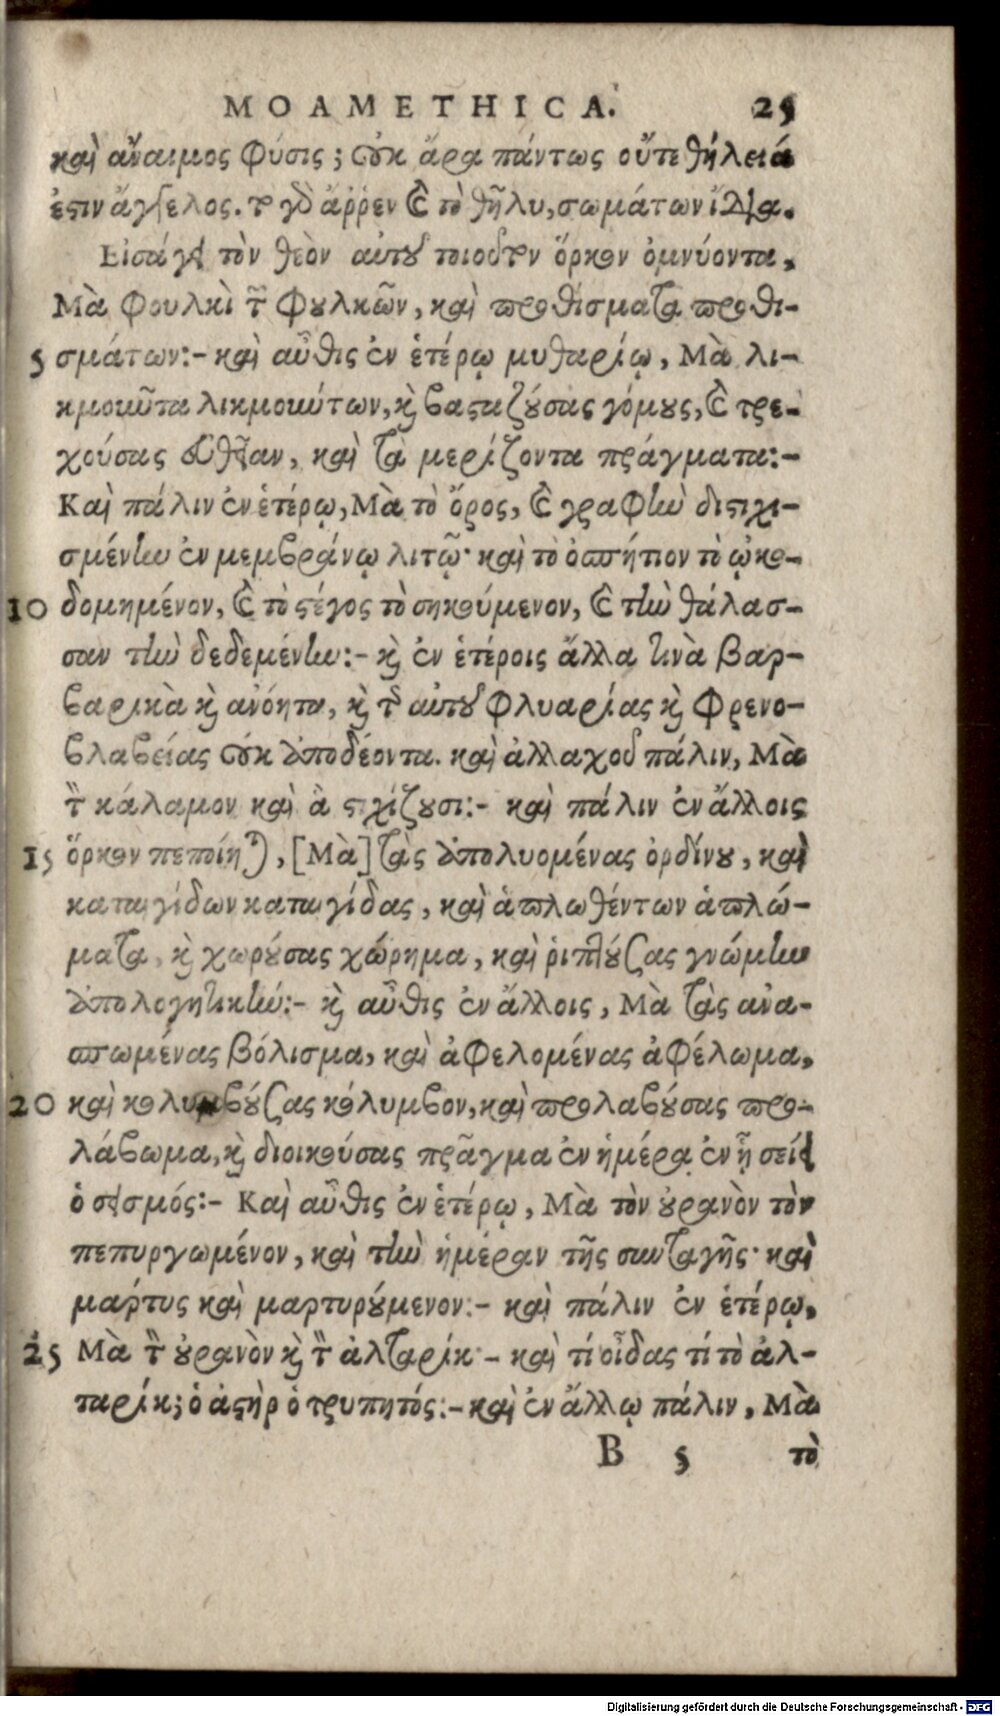 MOAMETHICA. 25
καὶ ἄναιμος φύσις; οὐκ ἄρα πάντως οὔτε θήλειά
ἐστιν ἄγγελος. τὸ γὸ ἄῤῥεν καὶ τὸ θῆλυ, σωμάτων ἴδια.
Εἰσάγει τὸν θεὸν αὐτοῦ τοιοῦτον ὅρκον ὀμνύοντα,
Μὰ φουλκὶ τῶν φουλκῶν, καὶ προθίσματα προθι-
5 σμάτων:- καὶ αὖθις ἐν ἑτέρῳ μυθαρίῳ, Μὰ λι-
κμοιῶτα λικμοιώτων, καὶ βασταζούσας γόμους, καὶ τρε-
χούσας εὐθεῖαν, καὶ τὰ μερίζοντα πράγματα:-
Καὶ πάλιν ἐν ἑτέρῳ, Μὰ τὸ ὄρος, καὶ γραφὴν διστιχι-
σμένην ἐν μεμβράνῳ λιτῷ· καὶ τὸ ὀσπήτιον τὸ ᾠκο-
10 δομημένον, καὶ τὸ στέγος τὸ σηκούμενον, καὶ τὴν θάλασ-
σαν τὴν δεδεμένην:- καὶ ἐν ἑτέροις ἄλλα τινὰ βαρ-
βαρικὰ καὶ ἀνόητα, καὶ τῆς αὐτοῦ φλυαρίας καὶ φρενο-
βλαβείας οὐκ ἀποδέοντα. καὶ ἀλλαχοῦ πάλιν, Μὰ
τὸν κάλαμον καὶ ἃ στιχίζουσι:- καὶ πάλιν ἐν ἄλλοις
15 ὅρκον πεποίηται, [Μὰ] τὰς ἀπολυομένας ὀρδίνου, καὶ
καταιγίδων καταιγίδας, καὶ ἁπλωθέντων ἁπλώ-
ματα, καὶ χωρούσας χώρημα, καὶ ῥιπτούσας γνώμην
ἀπολογητικήν:- καὶ αὖθις ἐν ἄλλοις, Μὰ τὰς ἀνα-
σπωμένας βόλισμα, καὶ ἀφελομένας ἀφέλωμα,
20 καὶ κολυμβούσας κόλυμβον, καὶ προλαβούσας προ-
λάβωμα, καὶ διοικούσας πρᾶγμα ἐν ἡμέρᾳ ἐν ᾗ σείει
ὁ σεισμός:- Καὶ αὖθις ἐν ἑτέρῳ, Μὰ τὸν οὐρανὸν τὸν
πεπυργωμένον, καὶ τὴν ἡμέραν τῆς συνταγῆς· καὶ
μάρτυς καὶ μαρτυρούμενον:- καὶ πάλιν ἐν ἑτέρῳ,
25 Μὰ τὸν οὐρανὸν καὶ τὸν ἀλταρίκ·- καὶ τί οἶδας τί τὸ ἀλ-
ταρίκ; ὁ ἀστὴρ ὁ τρυπητός:- καὶ ἐν ἄλλῳ πάλιν, Μὰ
B 5 τὸ
Digitalisierung gefördert durch die Deutsche Forschungsgemeinschaft - DFG